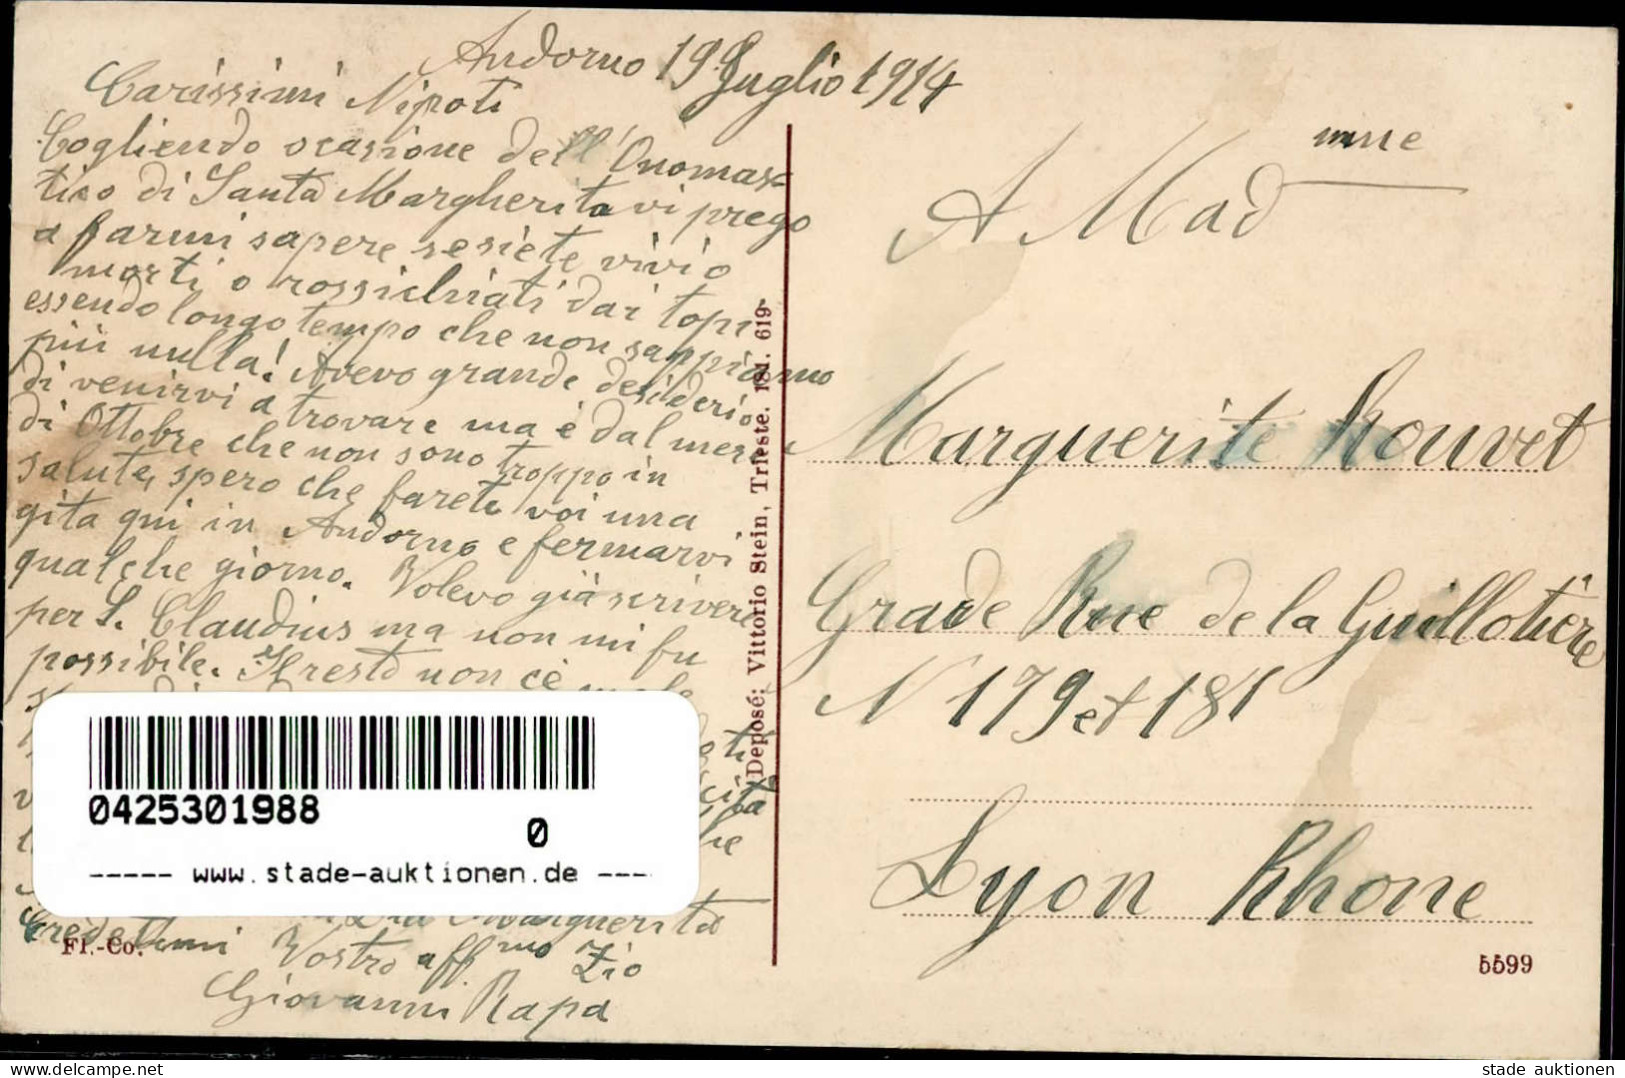 Andorno 19 Luglio 1914
Carissimi Nipoti
Cogliendo ocasione dell'Onomas=
tico di Santa Margherita vi prego
a farmi sapere se siete vivi o
morti o rossichiati dai topi
essendo longo tempo che non sappiamo
più nulla! Avevo grande desiderio
di venirvi a trovare ma è dal mese
di Ottobre che non sono troppo in
salute, spero che farete voi una
gita qui in Andorno e fermarvi
qualche giorno. Volevo già scrivere
per S. Claudius ma non mi fu
possibile. Il resto non cè male
Zia Marguerita
Credetemi Vostro aff.mo Zio
Giovanni Rapa
Deposé: Vittorio Stein, Trieste. 181. 619
Fl.-Co.
A Madmme
Marguerite Rouvet
Grade Rue de la Guillotière
N 179 et 181
Lyon Rhone
5599
0425301988
0
----- www.stade-auktionen.de ----
stade auktionen